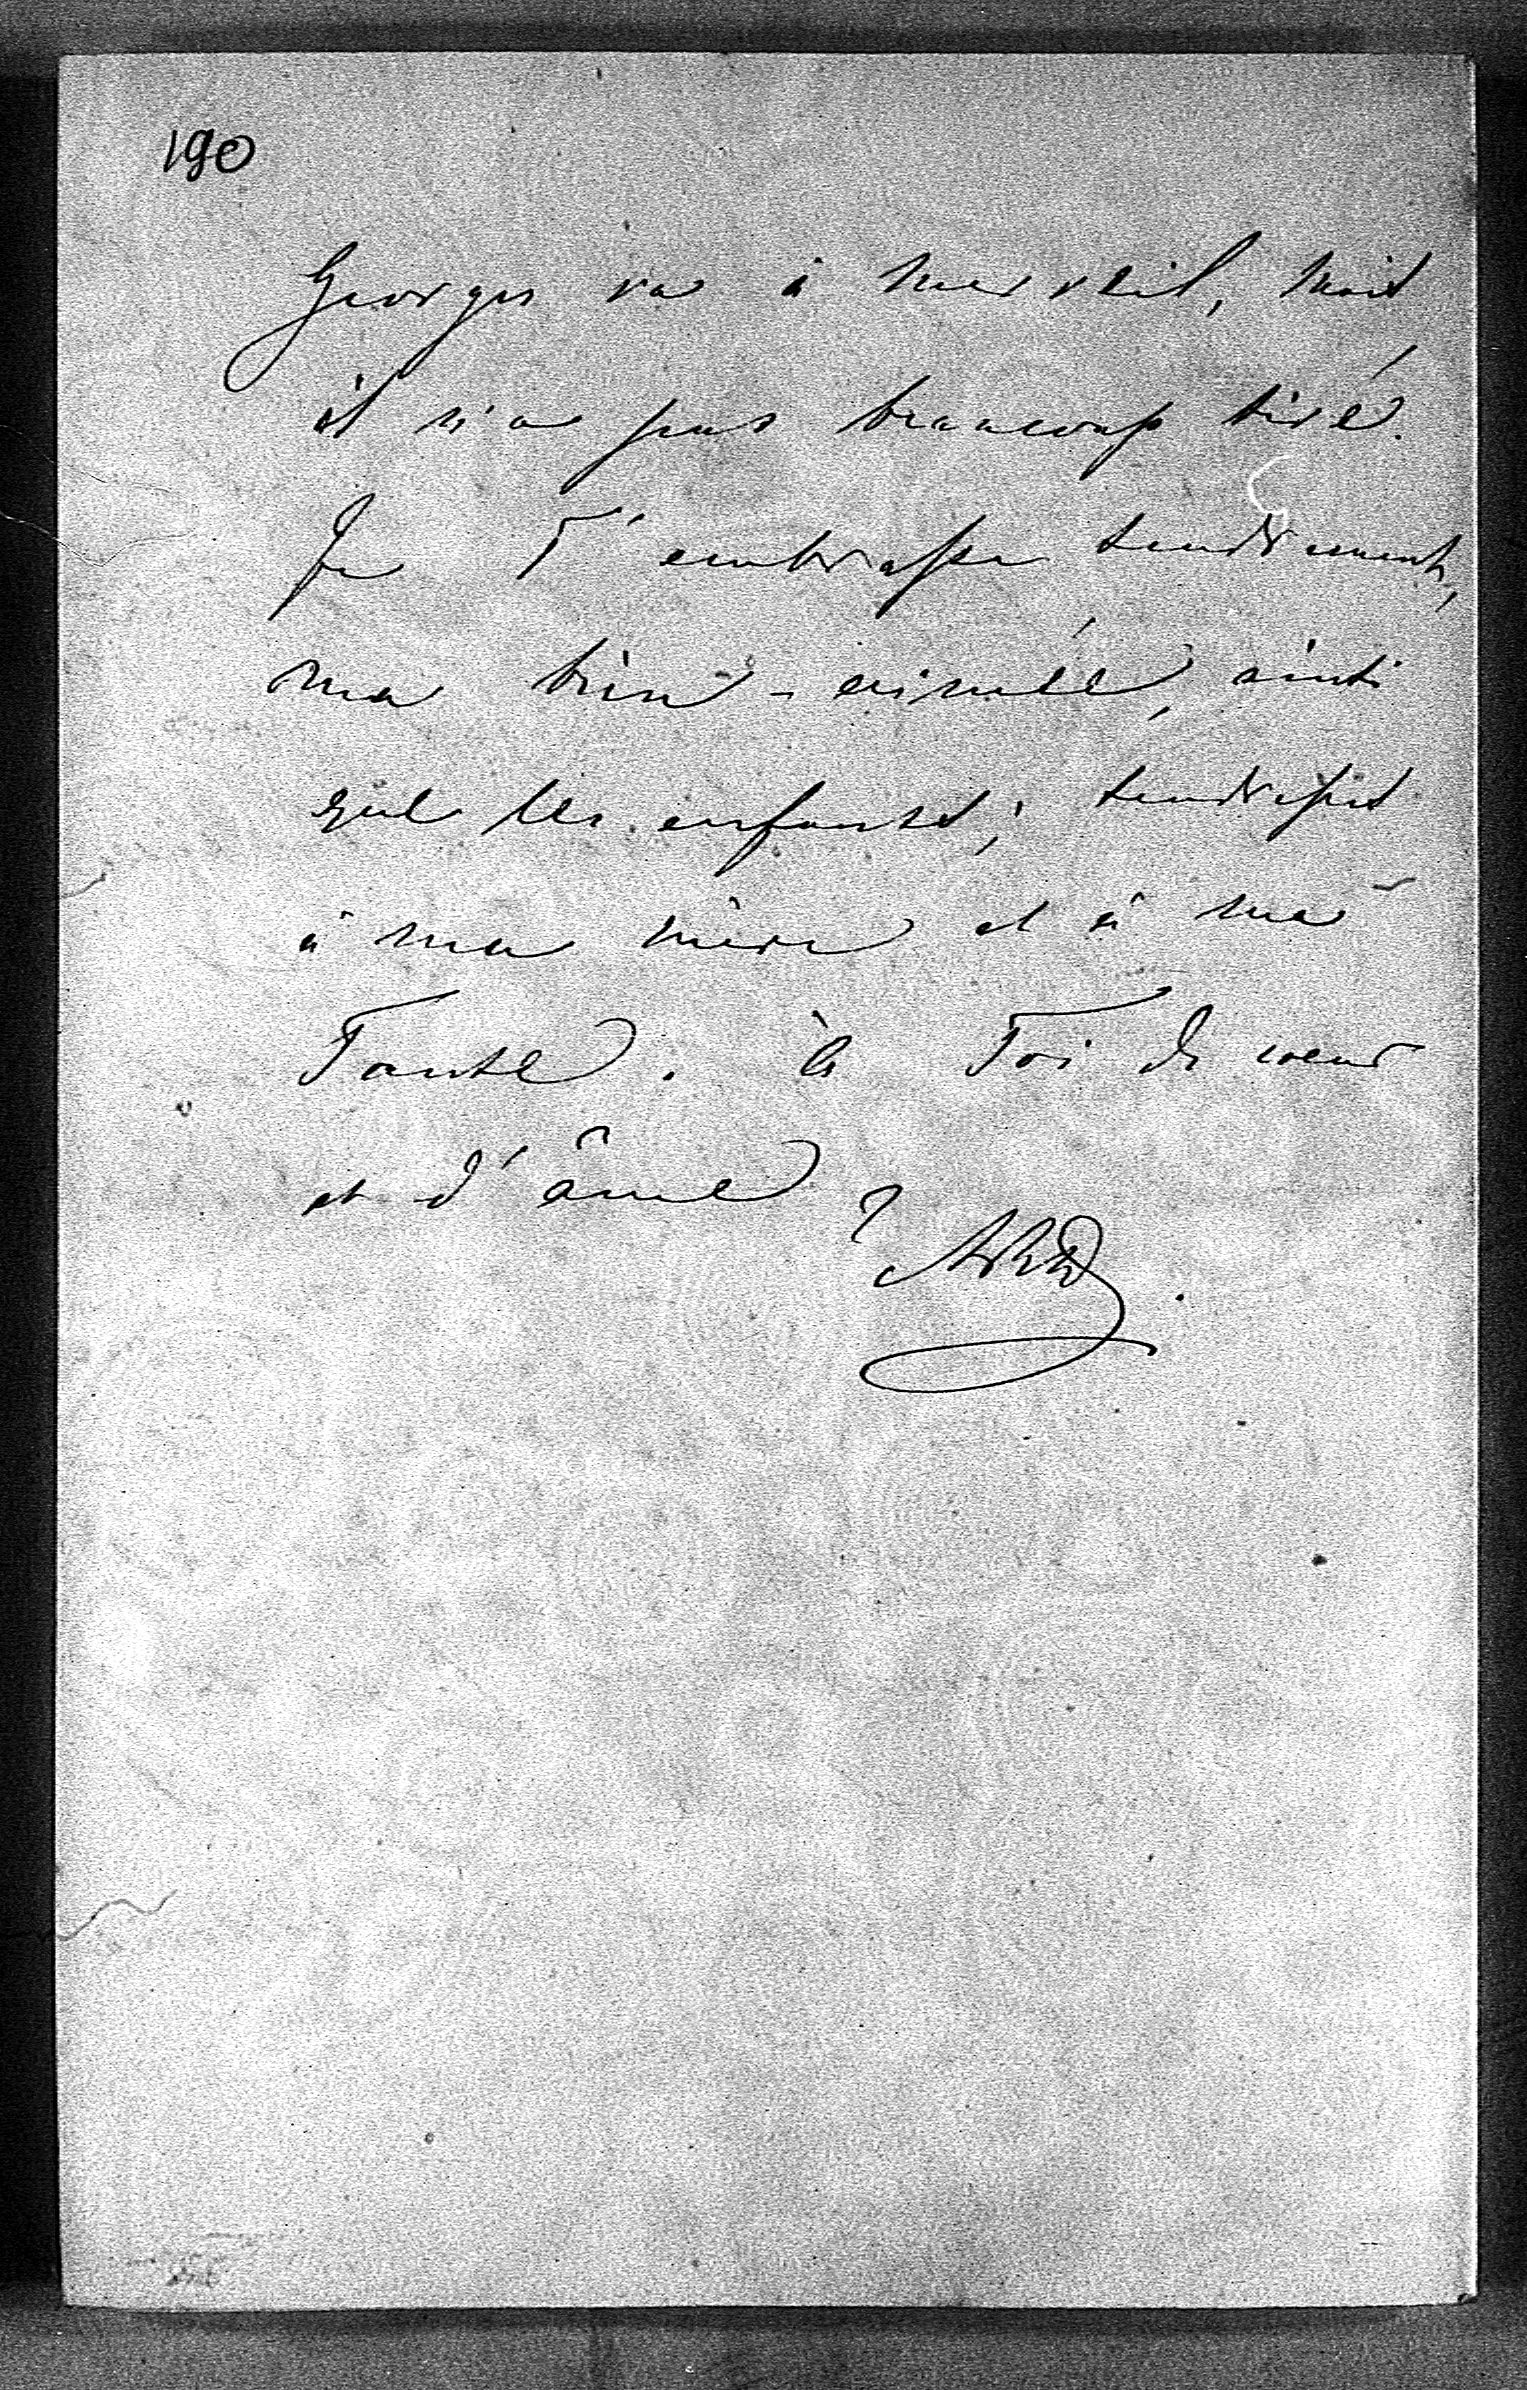 190
Georges va à merveil, mais
il n'a pas beaucoup tiré.
Je T'embrasse tendrement,
ma bien-aimée, ainsi
que les enfants; tendresses
à ma mère et à ma
Tante. à Toi de cœur
et d'âme